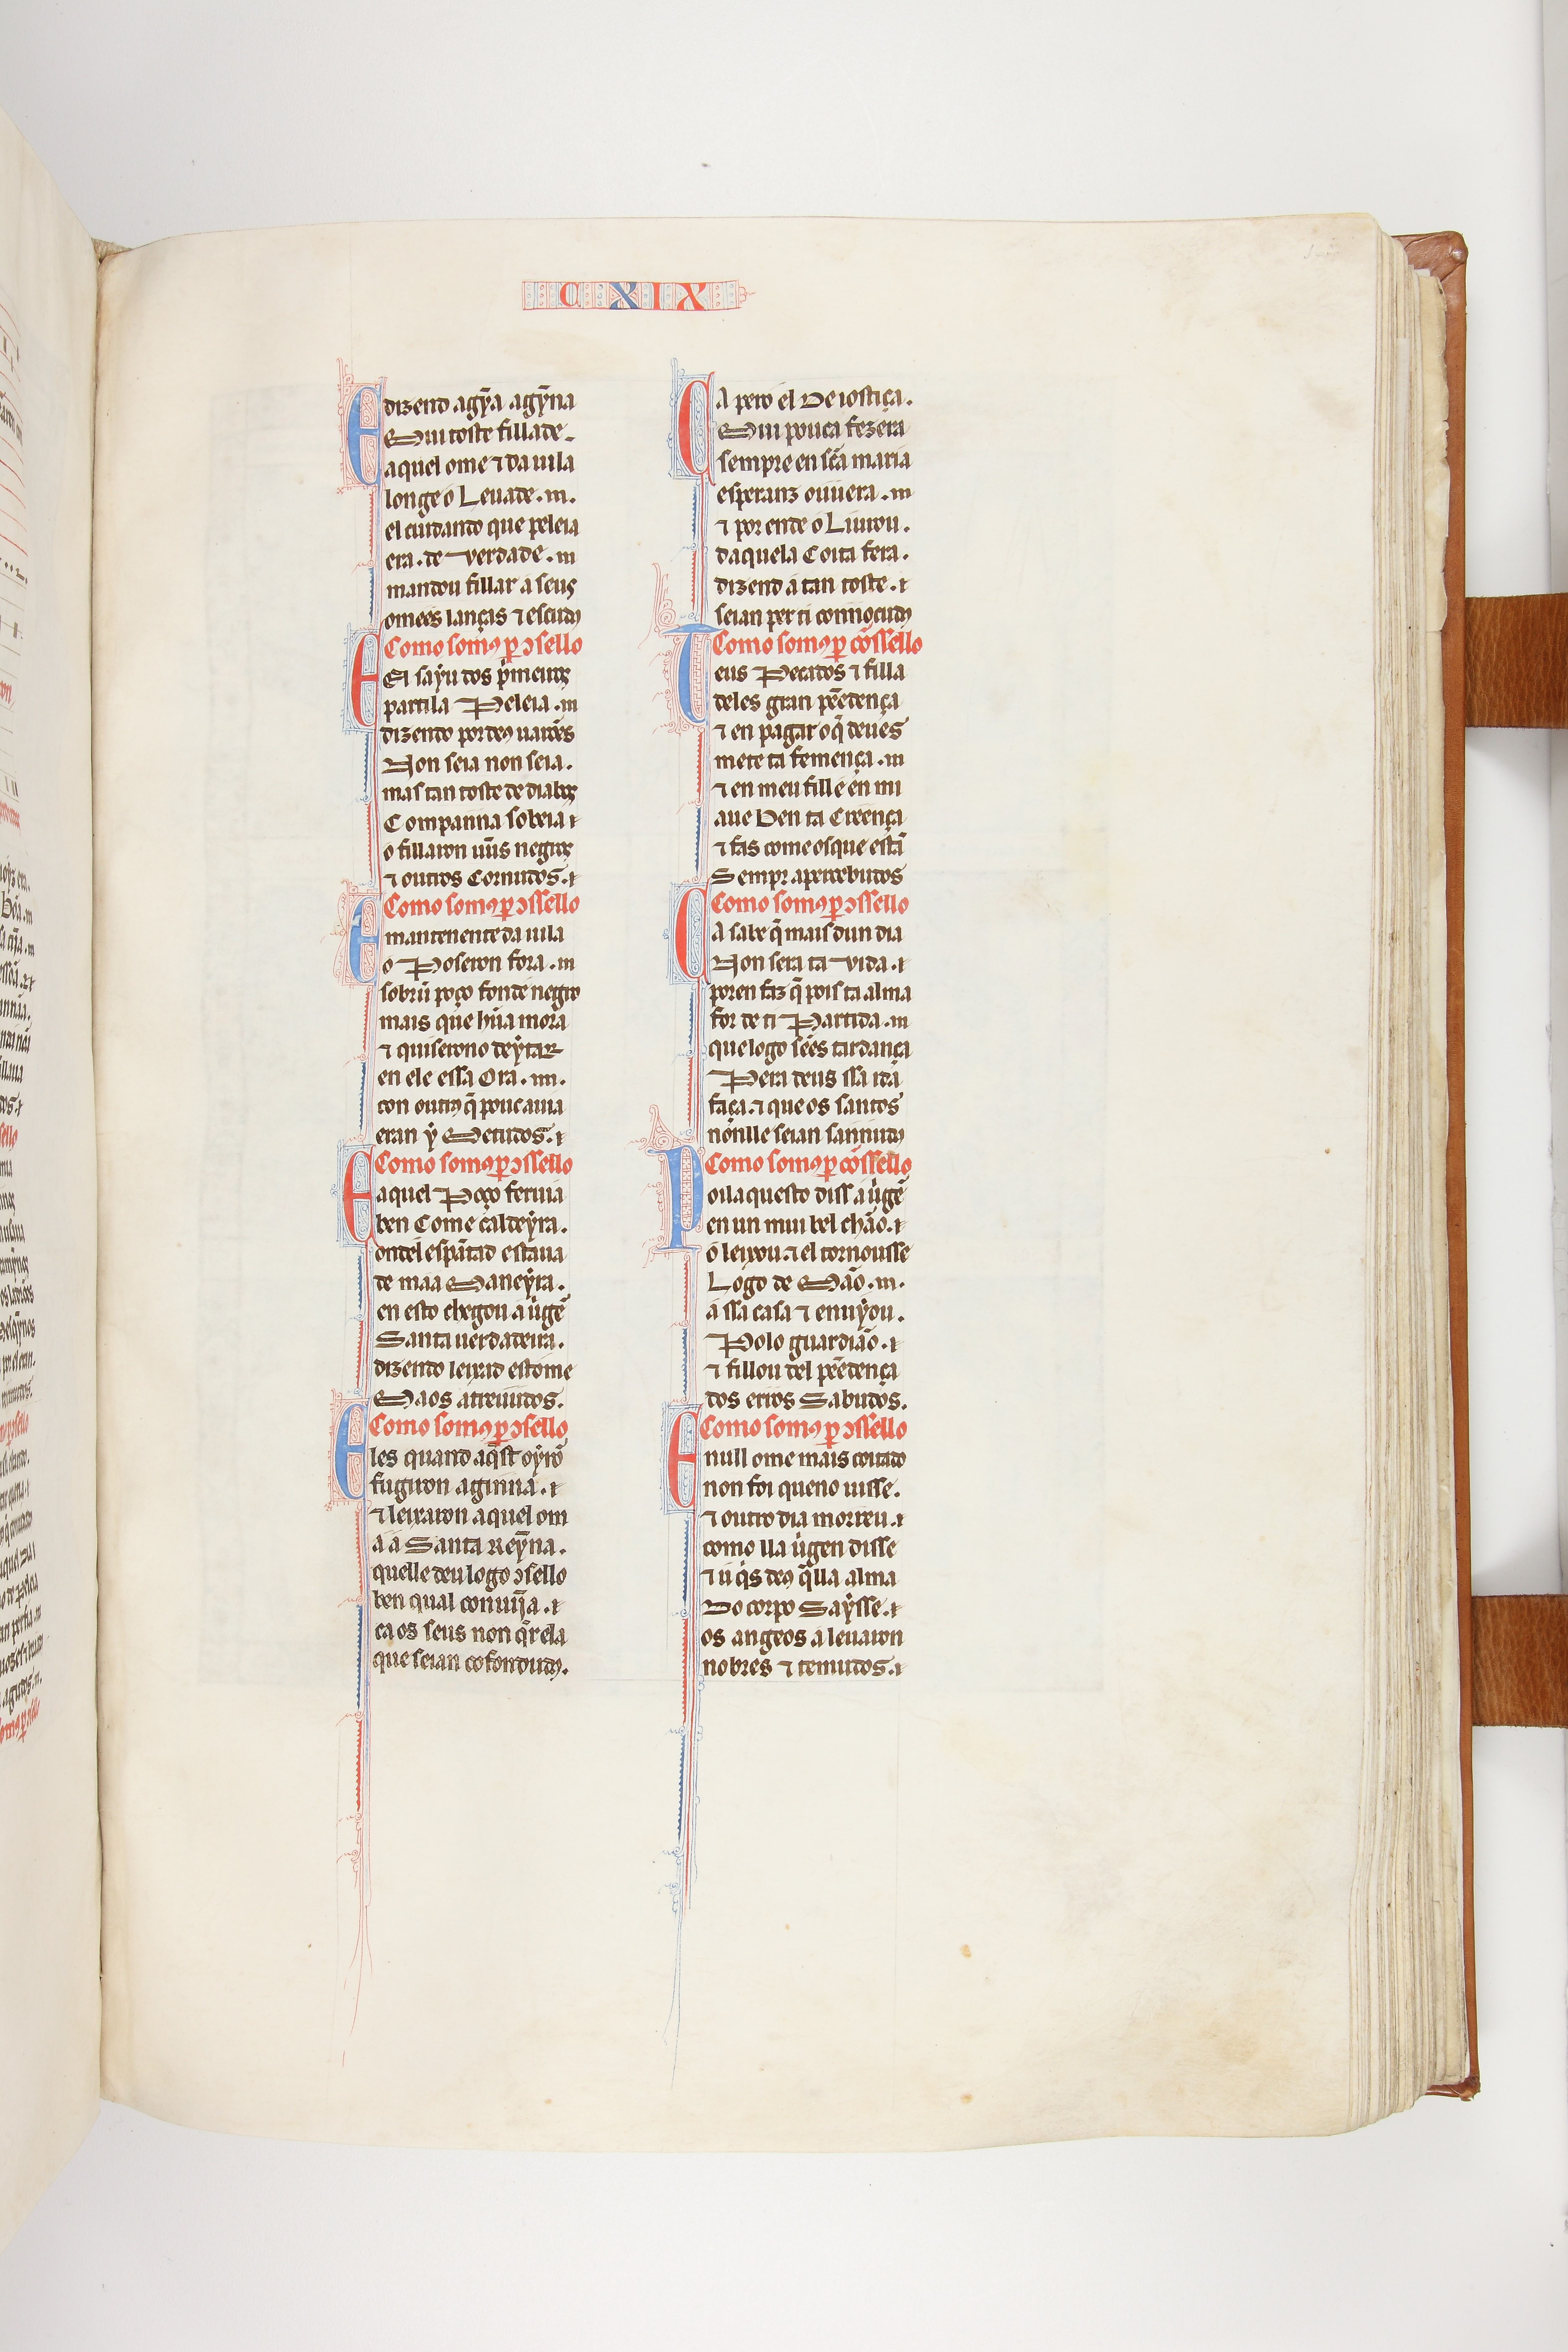 C XIX
E dizend agỹa agỹna
Mui toste fillade.
aquel ome ⁊ da uila
longe o Leuade. m.
el cuidando que peleia
era. de verdade. m
mandou fillar a seus
omẽes lanças ⁊ escudꝯ
Como somꝯ ꝑ ↄsello
E El sayu dos p̃meiros
partila Peleia. m
dizendo por deꝯ uarões
Non seia non seia.
mas tan toste de diabos
Companna sobeia ⁊
o fillaron uũs negros
⁊ outros Cornudos. ⁊
Como somꝯ ꝑ ↄssello
E mantenente da uila
o Poseron fora. m
sobrũ poço fonde negro
mais que hũa mora
⁊ quiserono deytar
en ele essa Ora. m.
con outrꝯ q̃ pouc auia
eran y Metudos. ⁊
Como somꝯ ꝑ ↄssello
E aquel Poço feruia
ben Come caldeyra.
ond el espãtad estaua
de maa Maneyra.
en esto chegou a uirgẽ
Santa uerdadeira.
dizendo leixad est ome
Maos atreuudos.
Como somꝯ ꝑ ↄsello
E les quand aq̃st oyrõ
fugiron aginna. ⁊
⁊ leixaron aquel om
a a Santa Reỹna.
quelle deu logo ↄsello
ben qual conuĩja. ⁊
ca os seus non q̃r ela
que seian cõfondudꝯ.
C A pero el De iostiça.
Mui pouca fezera
sempre en sc̃a maria
esperanz ouuera. m
⁊ por ende o Liurou.
daquela Coita fera.
dizend a tan toste. ⁊
seian per ti connoçudꝯ
Como somꝯ ꝑ cõssello
T eus Pecados ⁊ filla
deles gran pẽedença
⁊ en pagar o q̃ deues
mete ta femença. m
⁊ en meu fille en mi
aue ben ta Creença
⁊ fas come os que estã
Sempr apercebudos
Como somꝯ ꝑ ↄssello
C A sabe q̃ mais dun dia
Non sera ta vida. ⁊
poren faz q̃ pois ta alma
for de ti Partida. m
que logo sẽes tardança
Pera deus ssa ida
faça. ⁊ que os santos
nonlle seian sannudꝯ
Como somꝯ ꝑ cõssello
P oila questo diss a uirgẽ
en un mui bel chão. ⁊
o leixou. ⁊ el tornousse
Logo de Mão. m.
a ssa casa ⁊ enuyou.
Polo guardião. ⁊
⁊ fillou del pẽedença
dos erros Sabudos.
Como somꝯ ꝑ ↄssello
E null ome mais coitado
non foi queno uisse.
⁊ outro dia morreu. ⁊
como lla uirgen disse
⁊ u q̃s deꝯ q̃lla alma
Do corpo Saysse. ⁊
os angeos a leuaron
nobres ⁊ temudos. ⁊